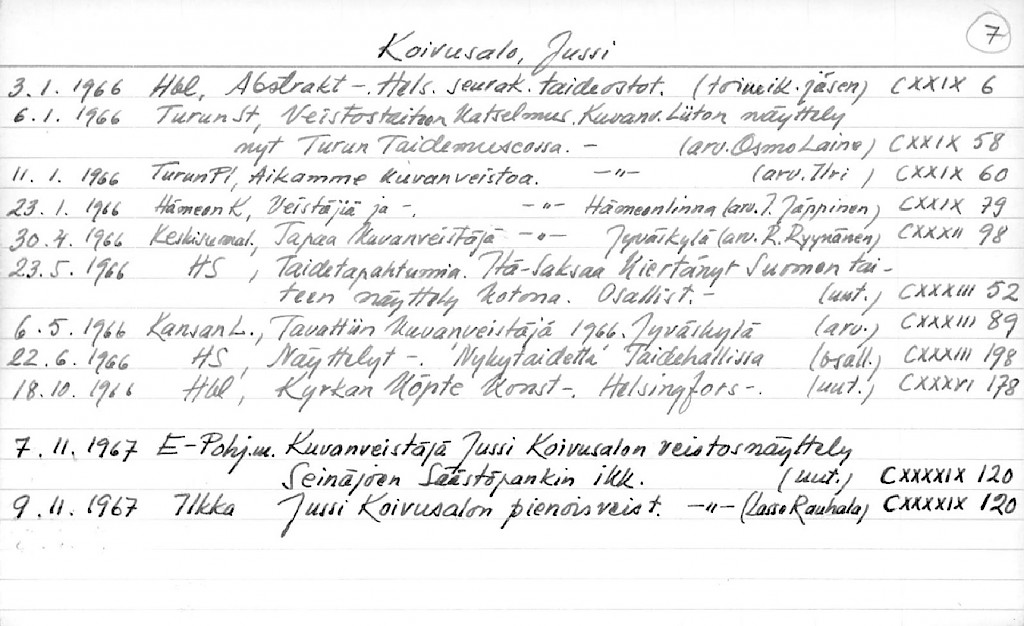 7
Koivusalo, Jussi
3.1.1966 Hbl, Abstrakt -. Hels. seurak. taideostot. (toimik. jäsen) CXXIX 6
6.1.1966 Turun St, Veistostaiteen Katselmus. Kuvanv. Liiton näyttely
nyt Turun Taidemuseossa. - (arv. Osmo Laine) CXXIX 58
11.1.1966 Turun Pl, Aikamme Kuvanveistoa. -"- (arv. Ilri ) CXXIX 60
23.1.1966 Hämeen K, Veistäjiä ja -. -"- Hämeenlinna (arv. J. Jäppinen) CXXIX 79
30.4.1966 Keskisuomal. Tapaa Kuvanveistäjä -"- Jyväskylä (arv. R. Ryynänen) CXXXII 98
23.5.1966 HS, Taidetapahtumia. Itä-Saksaa Kiertänyt Suomen tai-
teen näyttely Kotona. Osallist. - (uut.) CXXXIII 52
6.5.1966 Kansan L., Tavattiin Kuvanveistäjä 1966. Jyväskylä (arv.) CXXXIII 89
22.6.1966 HS, Näyttelyt -. 'Nykytaidetta' Taidehallissa (osall.) CXXXIII 198
18.10.1966 Hbl, Kyrkan Köpte Konst -. Helsingfors -. (uut.) CXXXVI 178
7.11.1967 E-Pohj.m. Kuvanveistäjä Jussi Koivusalon veistosnäyttely
Seinäjoen Säästöpankin ikk. (uut.) CXXXXIX 120
9.11.1967 Ilkka Jussi Koivusalon pienoisveist. -"- (Lasse Rauhala) CXXXXIX 120